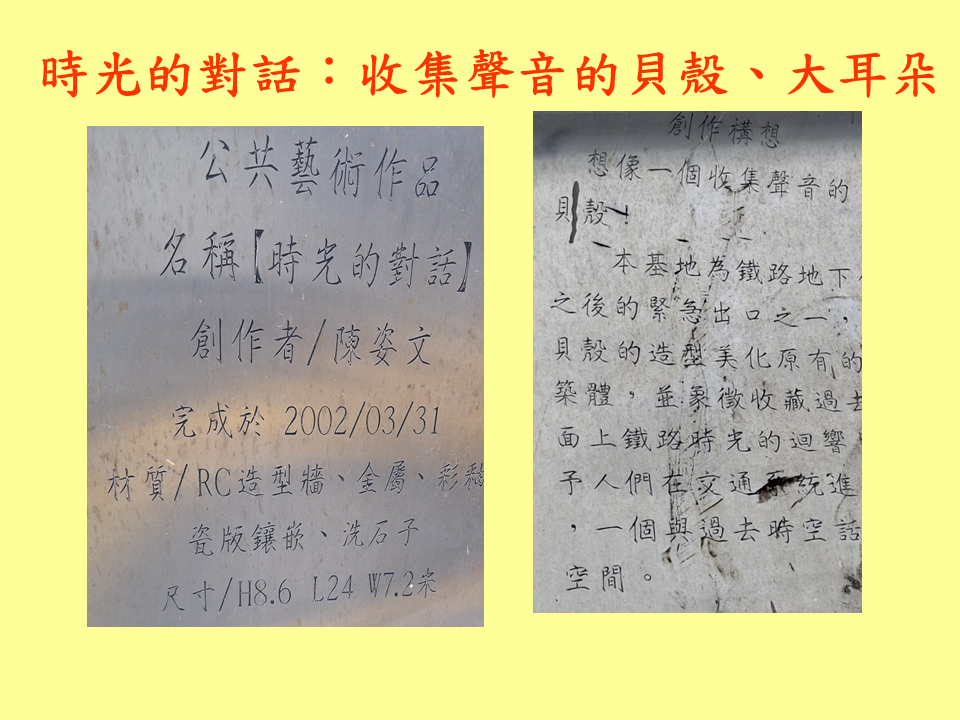 時光的對話：收集聲音的貝殼、大耳朵
公共藝術作品
名稱【時光的對話】
創作者/陳姿文
完成於 2002/03/31
材質/RC造型牆、金屬、彩釉
瓷版鑲嵌、洗石子
尺寸/H8.6 L24 W7.2米
創作構想
想像一個收集聲音的
貝殼！
本基地為鐵路地下
之後的緊急出口之一，
貝殼的造型美化原有的
築體，並象徵收藏過去
面上鐵路時光的迴響
予人們在交通系統進
，一個與過去時空話
空間。